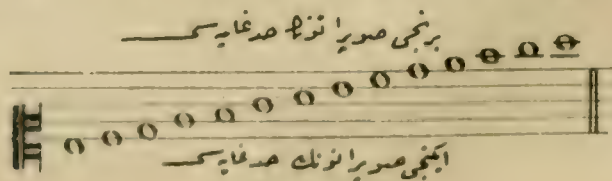 برنجی صوپرانونك حد غایه‌سی
ایكنجی صوپرانونك حد غایه‌سی